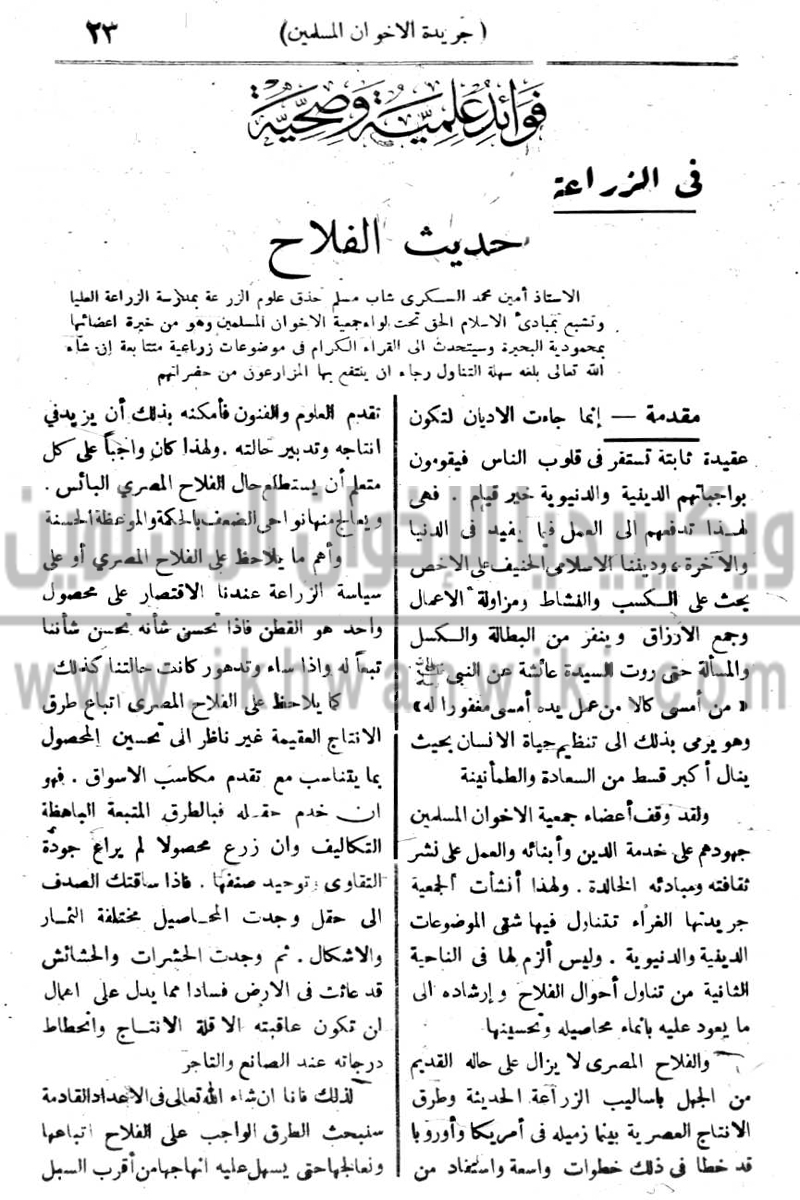 (جريدة الاخوان المسلمين)
٢٣
فَوَائِدُ عِلْمِيَّة وَصِحِّيَّة
فى الزراعة
حديث الفلاح
الاستاذ أمين محمد السكرى شاب مسلم حذق علوم الزرعة بمدرسة الزراعة العليا
وتشبع بمبادئ الاسلام الحق تحت لواء جمعية الاخوان المسلمين وهو من خيرة اعضائها
بمحمودية البحيرة وسيتحدث الى القراء الكرام فى موضوعات زراعية متتابعة إن شاء
الله تعالى بلغه سهلة التناول رجاء ان ينتفع بها المزارعون من حضراتهم
مقدمة — إنما جاءت الاديان لتكون
عقيدة ثابتة تستقر فى قلوب الناس فيقومون
بواجباتهم الدينية والدنيوية خير قيام . فهى
لهذا تدفعهم الى العمل فيما يفيد فى الدنيا
والآخرة ، وديننا الاسلامى الحنيف على الاخص
يحث على الكسب والنشاط ومزاولة الاعمال
وجمع الارزاق وينفر من البطالة والكسل
والمسألة حتى روت السيدة عائشة عن النبى ﷺ
« من أمسى كالا من عمل يده أمسى مغفورا له »
وهو يرمى بذلك الى تنظيم حياة الانسان بحيث
ينال أكبر قسط من السعادة والطمأنينة
ولقد وقف أعضاء جمعية الاخوان المسلمين
جهودهم على خدمة الدين وأبنائه والعمل على نشر
ثقافته ومبادئه الخالدة . ولهذا أنشأت الجمعية
جريدتها الغراء تتناول فيها شتى الموضوعات
الدينية والدنيوية . وليس ألزم لها فى الناحية
الثانية من تناول أحوال الفلاح وإرشاده الى
ما يعود عليه بانماء محاصيله وتحسينها
والفلاح المصرى لا يزال على حاله القديم
من الجهل باساليب الزراعة الحديثة وطرق
الانتاج العصرية بينما زميله فى أمريكا وأوروبا
قد خطا فى ذلك خطوات واسعة واستفاد من
تقدم العلوم والفنون فأمكنه بذلك أن يزيد في
انتاجه وتدبير حالته . ولهذا كان واجباً على كل
متعلم أن يستطلع حال الفلاح المصري البائس .
ويعالج منها نواحى الضعف بالحكمة والموعظة الحسنة
وأهم ما يلاحظ على الفلاح المصري أو على
سياسة الزراعة عندنا الاقتصار على محصول
واحد هو القطن فاذا تحسن شأنه تحسن شأننا
تبعاً له واذا ساء وتدهور كانت حالتنا كذلك
كما يلاحظ على الفلاح المصرى اتباع طرق
الانتاج العقيمة غير ناظر الى تحسين المحصول
بما يتناسب مع تقدم مكاسب الاسواق . فهو
ان خدم حقله فبالطرق المتبعة الباهظة
التكاليف وان زرع محصولا لم يراع جودة
التقاوى وتوحيد صنفها . فاذا ساقتك الصدف
الى حقل وجدت المحاصيل مختلفة الثمار
والاشكال . ثم وجدت الحشرات والحشائش
قد عاثت فى الارض فسادا مما يدل على اهمال
لن تكون عاقبته الا قلة الانتاج وانحطاط
درجاته عند الصانع والتاجر
لذلك فانا ان شاء الله تعالى فى الاعداد القادمة
سنبحث الطرق الواجب على الفلاح اتباعها
ونعالجها حتى يسهل عليه انهاجها من أقرب السبل
ويكيبيديا الإخوان المسلمين
www.ikhwanwiki.com